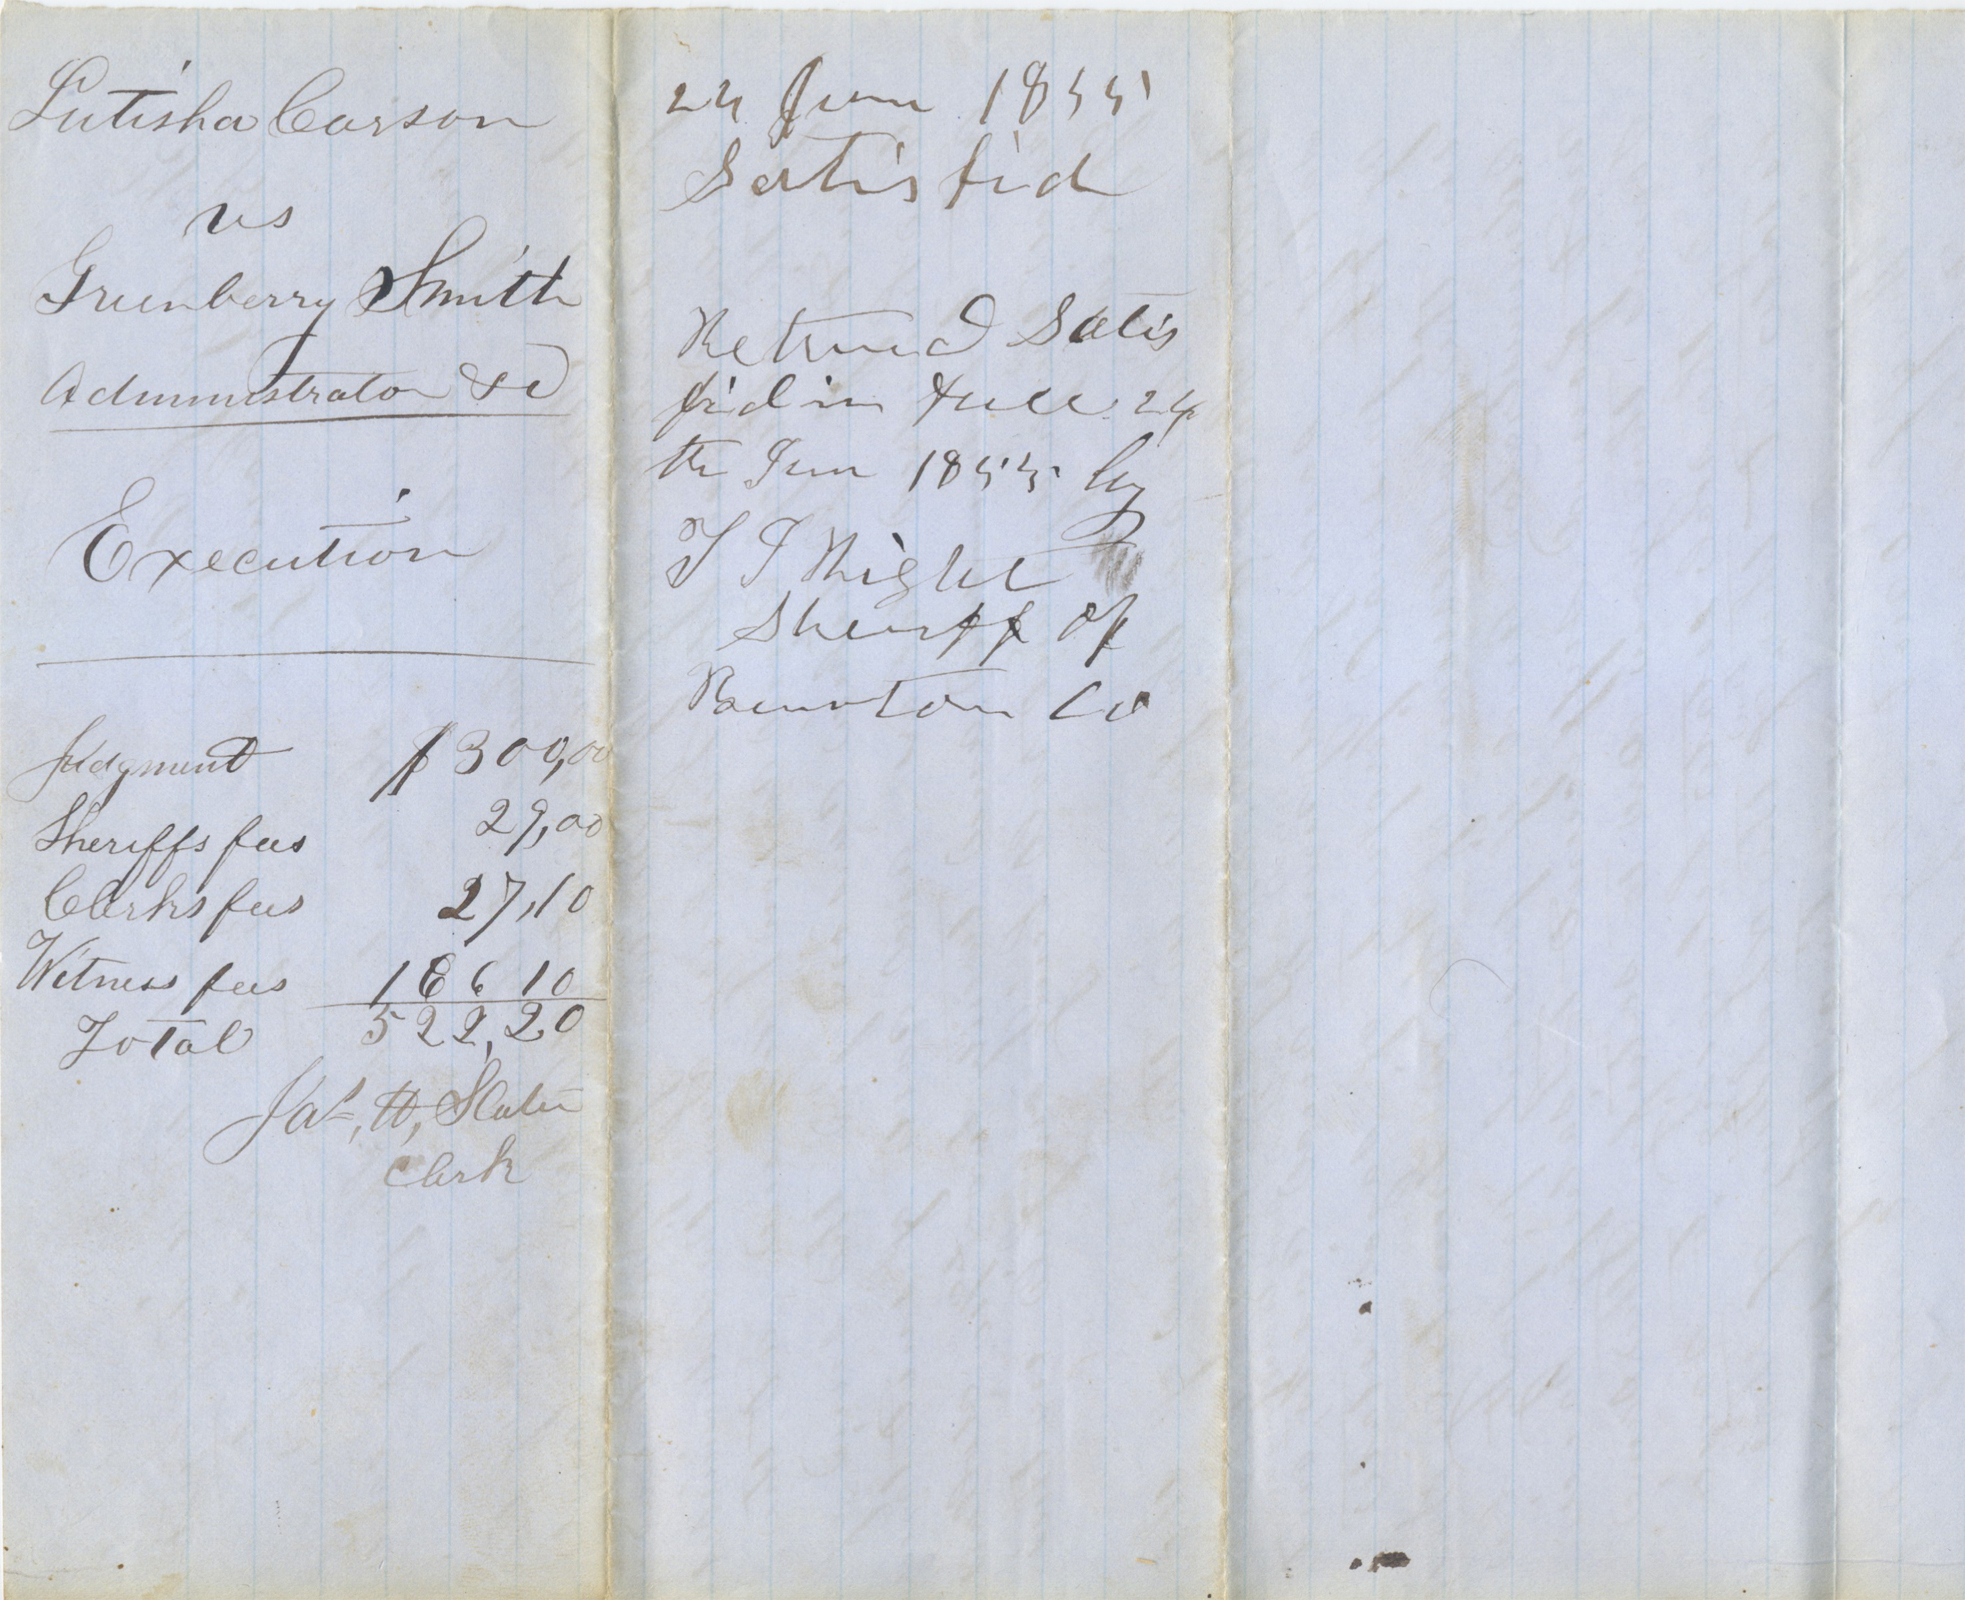 Lutisha Carson
vs
Greenberry Smith
Administrator &c
Execution
Judgment $300,00
Sheriffs fees 29,00
Clerks fees 27,10
Witness fees 166 10
Total 522,20
Jas, H, Slater
Clerk
24 June 1855
Satisfid
Returned Satis
fid in full 24
th June 1855 by
T J Right
Sheriff of
Benton Co